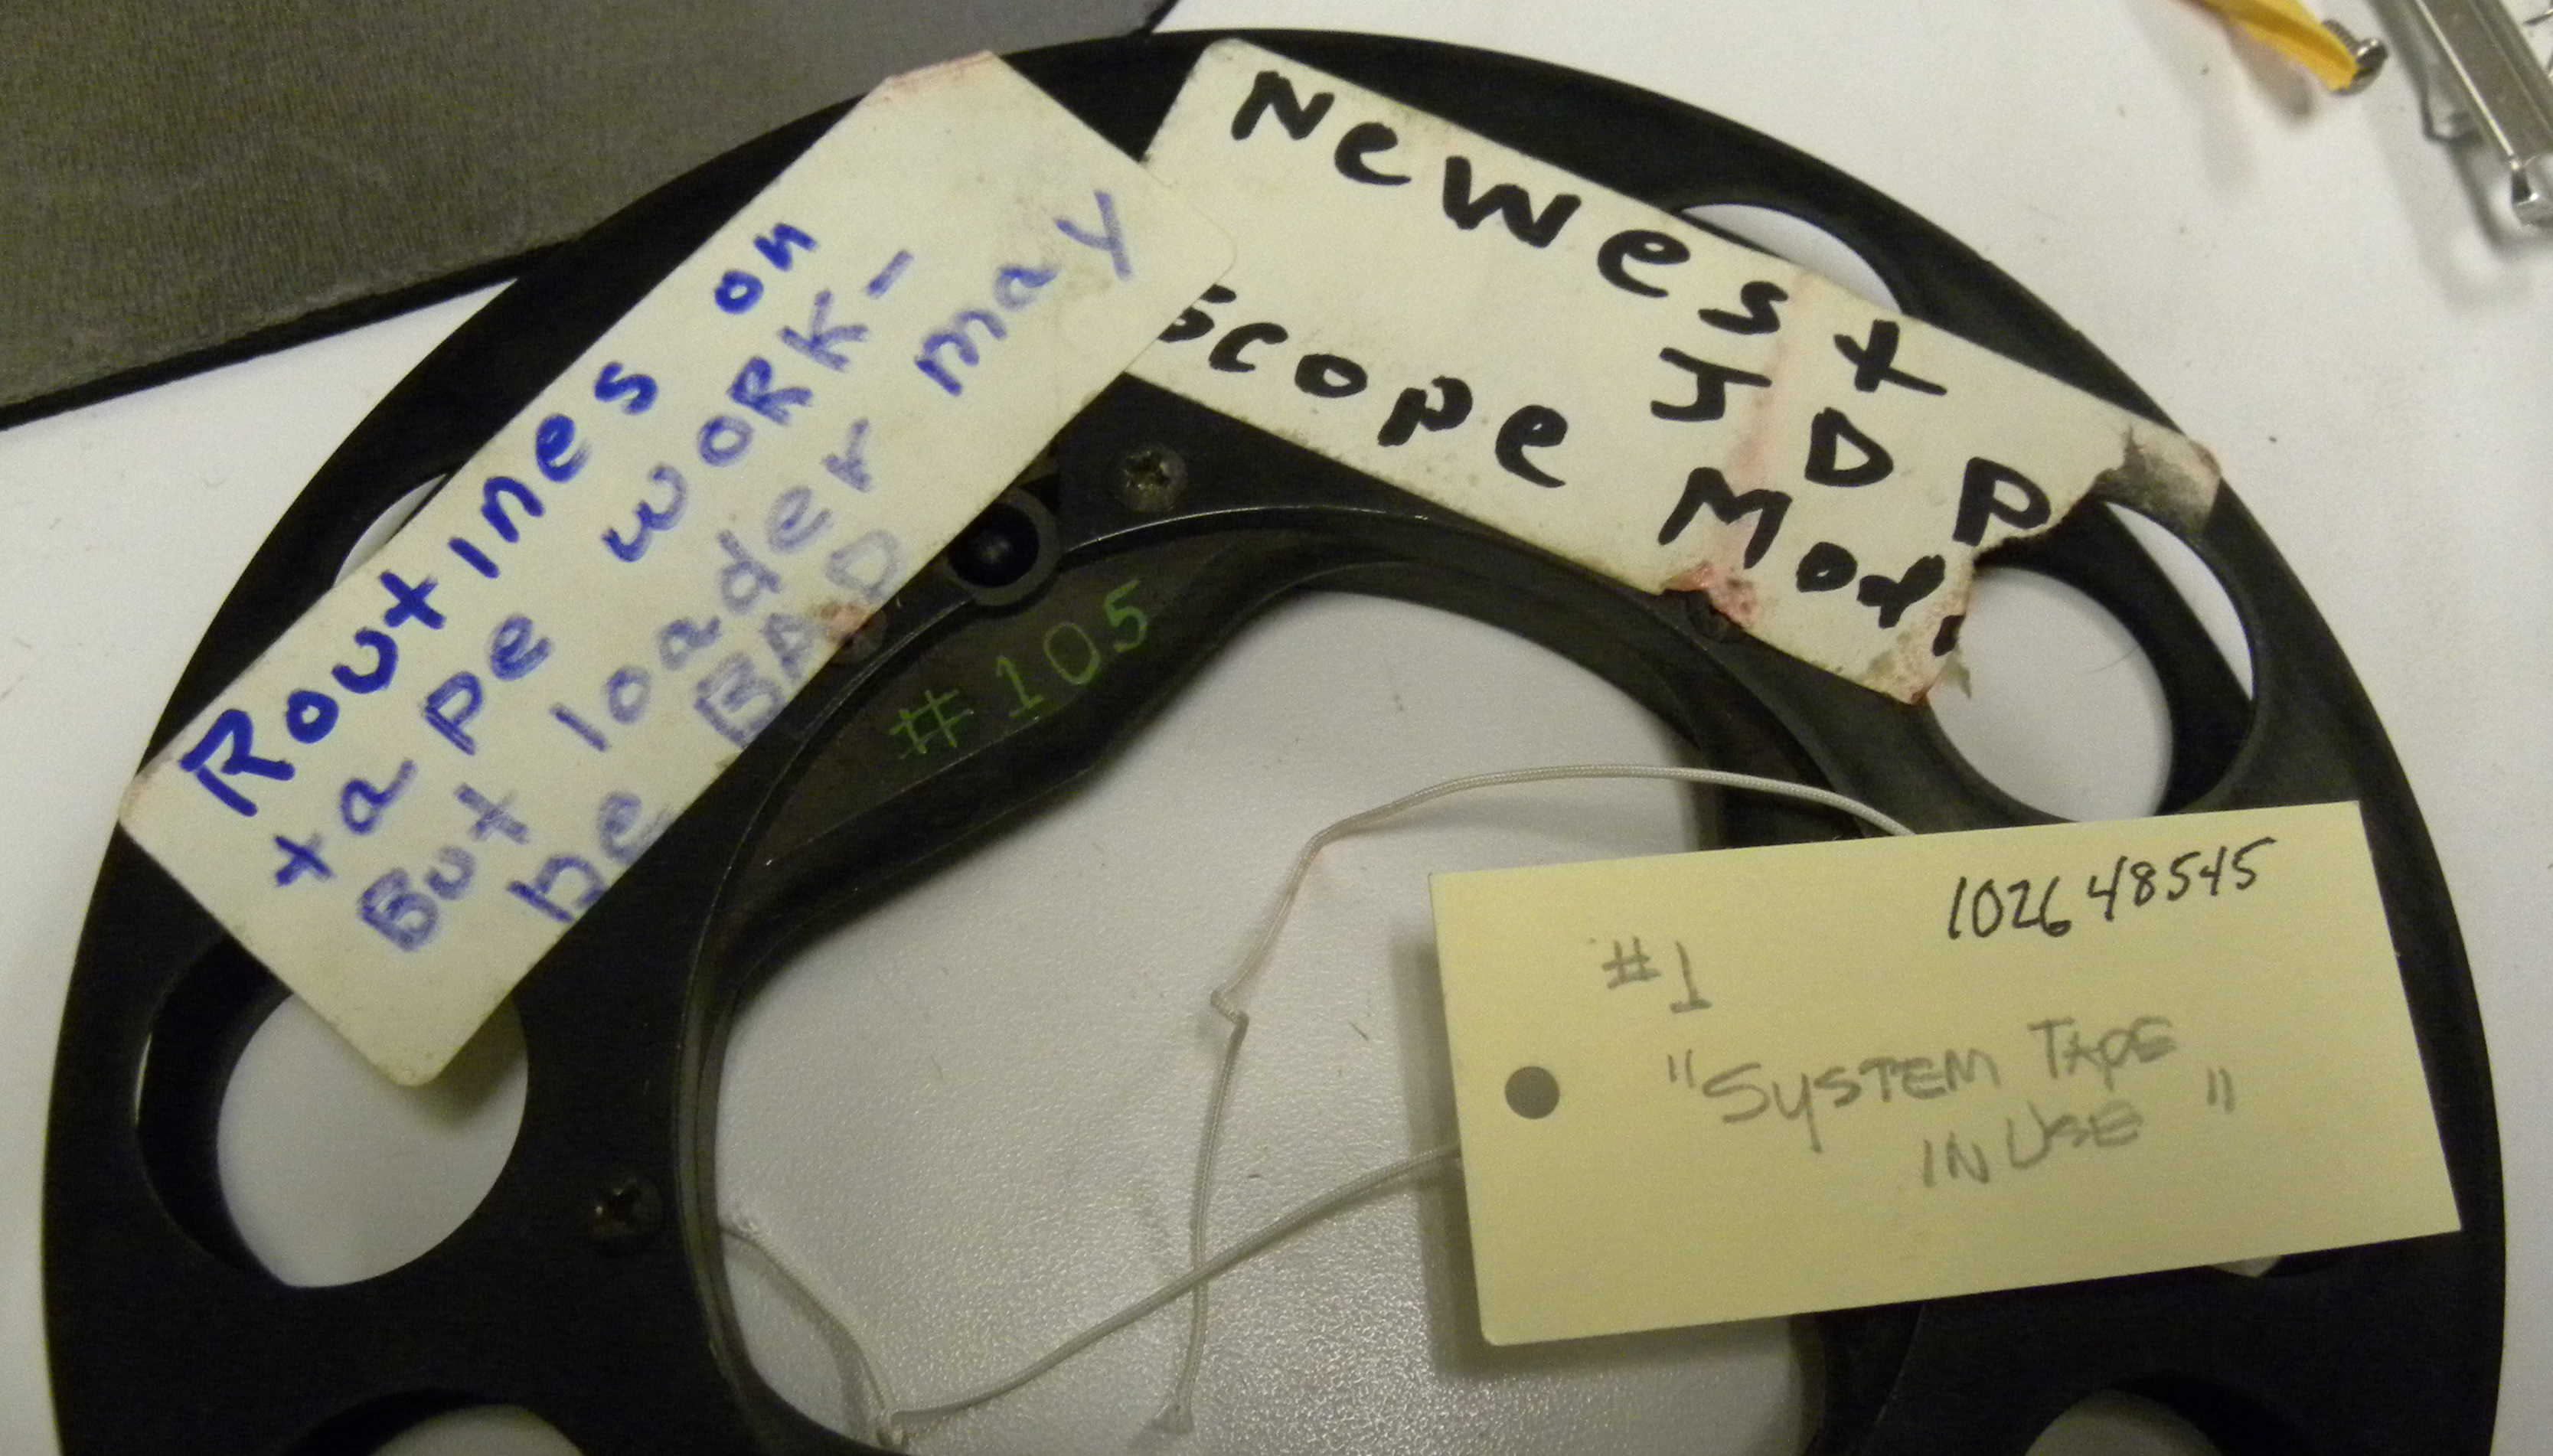 Routines on
tape work-
But loader may
be BAD
Newest
JDP
scope Mod.
#105
102648545
#1
"SYSTEM TAPE
IN USE"